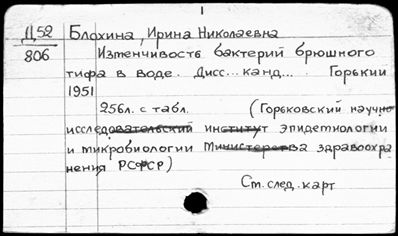 Д52 Блохина, Ирина Николаевна
806 Изменчивость бактерий брюшного
тифа в воде. Дисс... канд... Горький
1951
256л. с табл. (Горьковский научно
исследовательский институт эпидемиологии
и микробиологии Министерства здравоохра
нения РСФСР)
См. след. карт